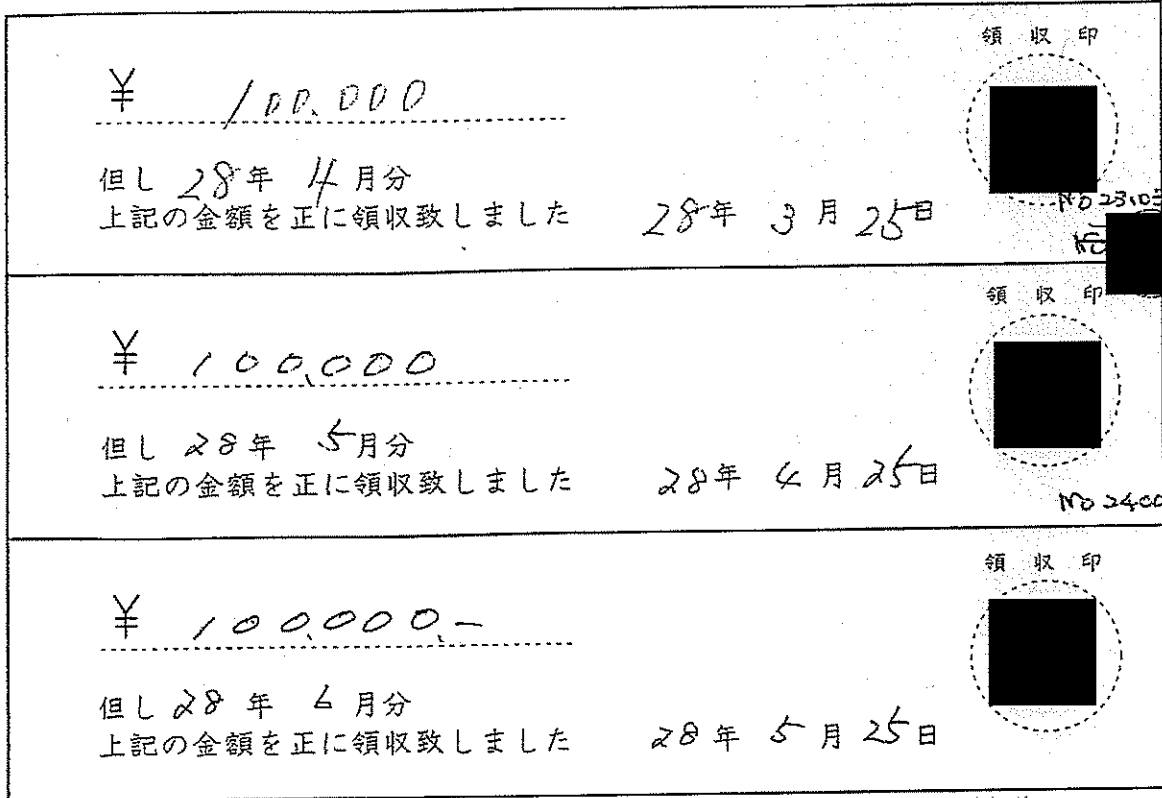 領収印
¥ 100,000
但し 28年 4月分
上記の金額を正に領収致しました 28年 3月 25日
領収印
¥ 100,000
但し 28年 5月分
上記の金額を正に領収致しました 28年 4月 25日
領収印
¥ 100,000,-
但し 28年 6月分
上記の金額を正に領収致しました 28年 5月 25日